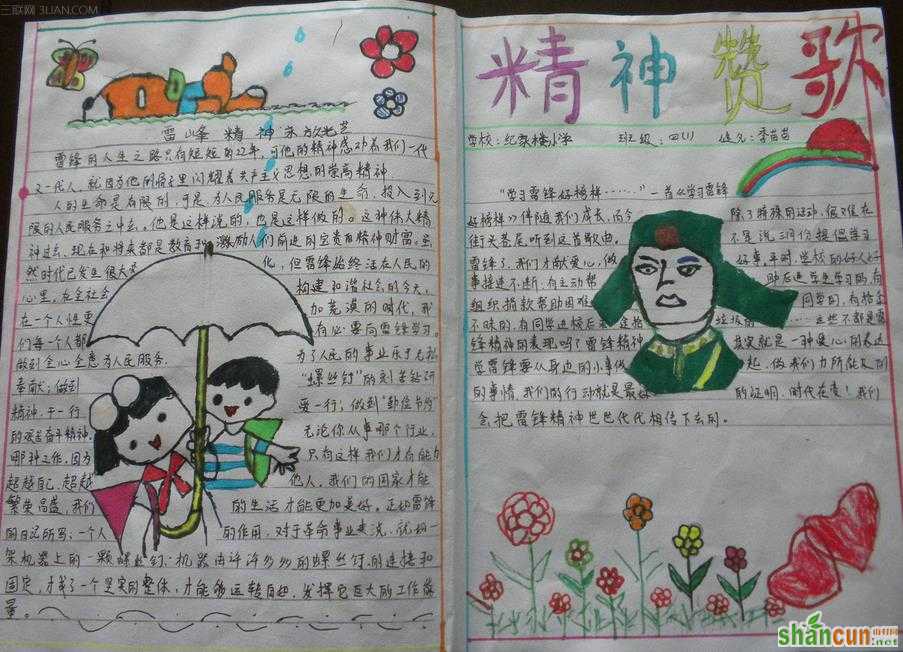 三联网 3LIAN.COM
雷峰精神永放光芒
雷锋的人生之路只有短短的22年，可他的精神感动着我们一代
又一代人，就因为他的骨子里闪耀着共产主义思想的崇高精神
人的生命是有限的，可是，为人民服务是无限的生命，投入到无
限的人民服务之中去。他是这样说的，也是这样做的。这种伟大精
神过去、现在和将来都是教育和激励人们前进的宝贵的精神财富。虽
然时代已发生很大变化，但雷锋始终活在人民的
心里，在全社会构建和谐社会的今天，
在一个人性更加荒漠的时代，我
们每一个人都有必要向雷锋学习。
做到全心全意为人民服务，为了人民的事业乐于无私
奉献；做到“螺丝钉”的刻苦钻研
精神，干一行，爱一行；做到“勤俭节约”
的艰苦奋斗精神。无论你从事哪个行业，
哪种工作，因为只有这样我们才有能力
超越自己，超越他人，我们的国家才能
繁荣昌盛，我们的生活才能更加美好。正如雷锋
的日记所写：一个人的作用，对于革命事业来说，就如一
架机器上的一颗螺丝钉。机器由许许多多的螺丝钉的连接和
固定，才成了一个坚实的整体，才能够运转自如，发挥它巨大的工作能
量。
精神赞歌
学校：纪家楼小学 班级：四(1) 姓名：李苗苗
“学习雷锋好榜样……”一首《学习雷锋
好榜样》伴随我们成长，而今
街头巷尾，听到这首歌曲。不是说三月份提倡学习
雷锋了，我们才献爱心，做好事，平时学校的好人好
事接连不断，有主动帮助后进学生学习的，有
组织捐款帮助困难同学的，有拾金
不昧的，有同学进校后
锋精神的表现吗？雷锋精神其实就是一种爱心的表达
学雷锋要从身边的小事做起，做我们力所能及的
的事情，我们的行动就是最好的证明，时代在变！我们
会把雷锋精神世世代代相传下去的。
shancun
.net